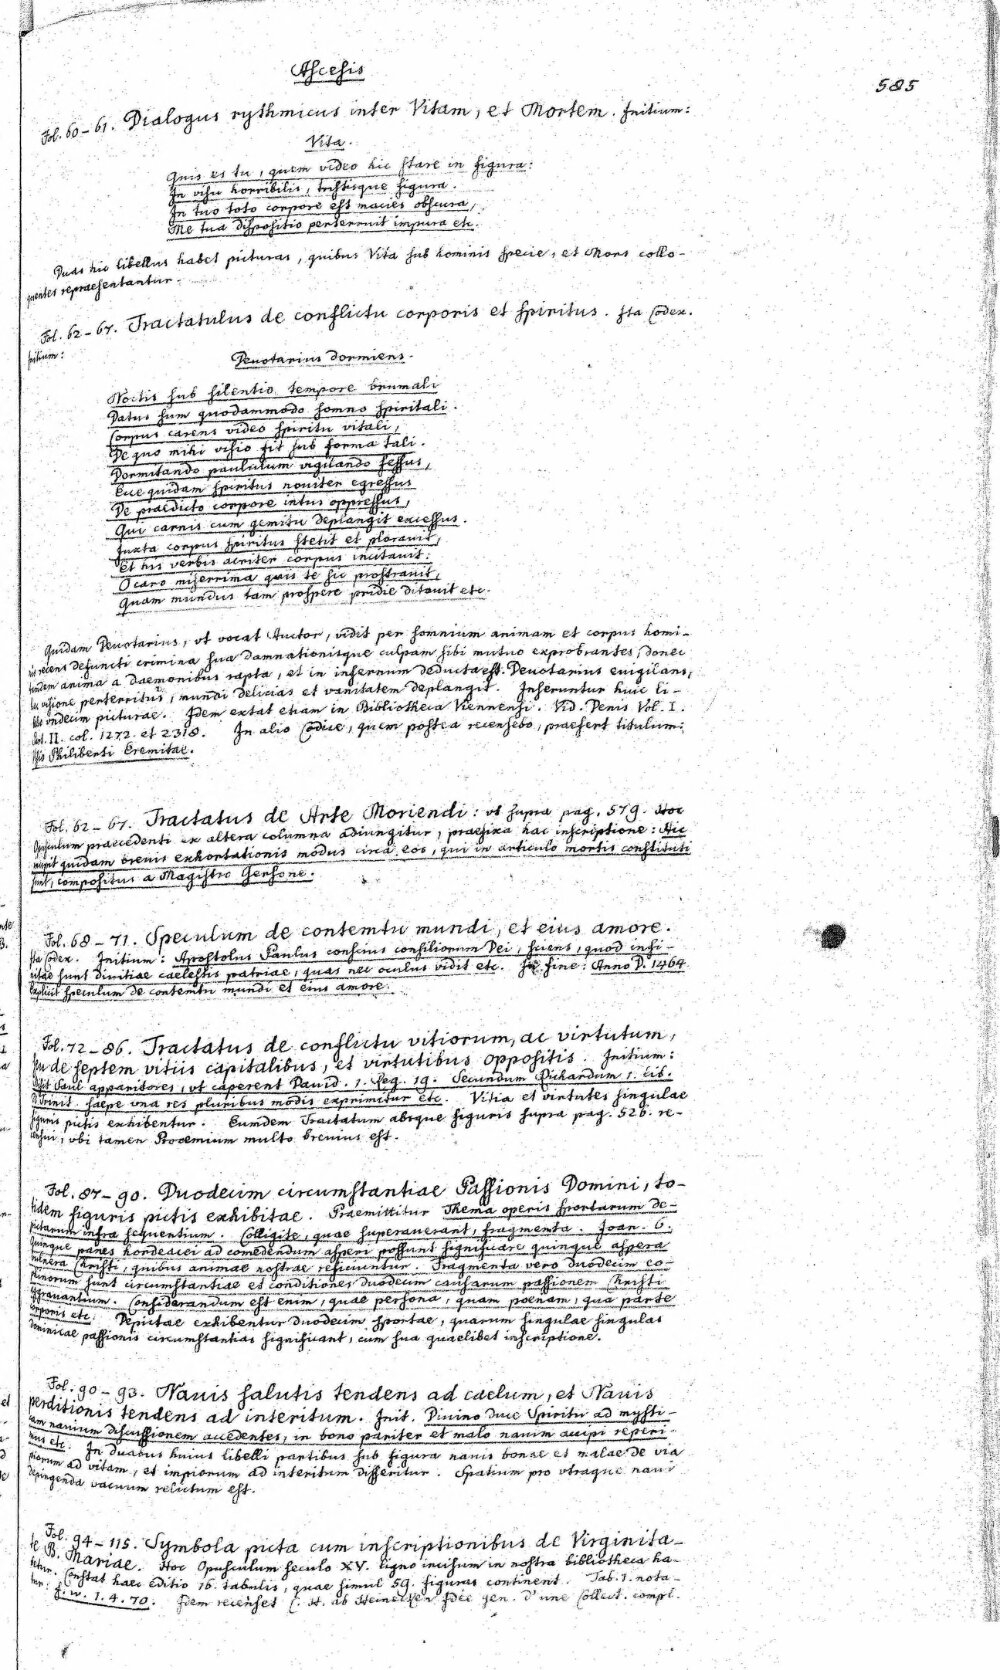 Ascesis
585
Fol. 60-61. Dialogus rythmicus inter Vitam, et Mortem. Initium:
Vita.
Quis es tu, quem video hic stare in figura:
In visu horribilis, tristisque figura.
In tuo toto corpore est macies obscura,
Me tua dispositio perterruit impura etc.
Duas hic libellus habet picturas, quibus Vita sub hominis specie, et Mors collo-
quentes repraesentantur.
Fol. 62-67. Tractatulus de conflictu corporis et spiritus. Ita Codex.
Initium:
Devotarius dormiens.
Noctis sub silentio tempore brumali
Datus sum quodammodo somno spiritali.
Corpus carens video spiritu vitali,
De quo mihi visio fit sub forma tali.
Dormitando paululum vigilando fessus,
Ecce quidam spiritus noviter egressus
De praedicto corpore intus oppressus,
Qui carnis cum gemitu deplangit excessus.
Juxta corpus spiritus stetit et plorauit,
Et his verbis acriter corpus incitauit:
O caro miserrima quis te sic prostrauit,
Quam mundus tam prospere pridie ditauit etc.
Quidam Deuotarius, vt vocat Auctor, vidit per somnium animam et corpus homi-
nis recens defuncti crimina sua damnationisque culpam sibi mutuo exprobrantes, donec
tandem anima a Daemonibus rapta, et in infernum deducta est. Deuotarius euigilans,
visione perterritus, mundi delicias et vanitatem deplangit. Inseruntur huic li-
bello vndecim picturae. Idem extat etiam in Bibliotheca Viennensi. Vid. Denis Vol. I.
II. col. 1272. et 2318. In alio Codice, quem postea recensebo, praefert titulum:
Philiberti Eremitae.
Fol. 62-67. Tractatus de Arte Moriendi: vt supra pag. 579. Hoc
Opusculum praecedenti ex altera columna adiungitur, praefixa hac inscriptione: Hic
incipit quidam breuis exhortationis modus circa eos, qui in articulo mortis constituti
sunt, compositus a Magistro Gersone.
Fol. 68-71. Speculum de contemtu mundi, et eius amore.
Ita Codex. Initium: Apostolus Paulus conscius consiliorum Dei, sciens, quod infi-
nitae sunt diuitiae caelestis patriae, quas nec oculus vidit etc. In fine: Anno D. 1464.
Explicit speculum de contemtu mundi et eius amore.
Fol. 72-86. Tractatus de conflictu vitiorum, ac virtutum,
seu de septem vitiis capitalibus, et virtutibus oppositis. Initium:
Misit Saul apparitores, vt caperent Dauid. 1. Reg. 19. Secundum Richardum 1. lib.
D Trinit. saepe vna res pluribus modis exprimitur etc. Vitia et virtutes singulae
figuris pictis exhibentur. Eumdem Tractatum absque figuris supra pag. 526. re-
censui, vbi tamen Prooemium multo breuius est.
Fol. 87-90. Duodecim circumstantiae Passionis Domini, to-
tidem figuris pictis exhibitae. Praemittitur Thema operis sportarum de-
pictarum infra sequentium. Colligite, quae superauerant, fragmenta. Joan. 6.
Quinque panes hordeacei ad comedendum asperi possunt significare quinque aspera
vulnera Christi, quibus animae nostrae reficiuntur. Fragmenta vero duodecim co-
phinorum sunt circumstantiae et conditiones duodecim causarum passionem Christi
aggrauantium. Considerandum est enim, quae persona, quam poenam, qua parte
corporis etc. Depictae exhibentur duodecim sportae, quarum singulae singulas
dominicae passionis circumstantias significant, cum sua quaelibet inscriptione.
Fol. 90-93. Nauis salutis tendens ad caelum, et Nauis
perditionis tendens ad interitum. Init. Diuino duce Spiritu ad mysti-
cam nauium discussionem accedentes, in bono pariter et malo nauim accipi reperi-
mus etc. In duabus huius libelli partibus sub figura nauis bonae et malae de via
piorum ad vitam, et impiorum ad interitum disseritur. Spatium pro vtraque naui
depingenda vacuum relictum est.
Fol. 94-115. Symbola picta cum inscriptionibus de Virginita-
te B. Mariae. Hoc Opusculum seculo XV. ligno incisum in nostra bibliotheca ha-
betur. Constat haec editio 16. tabulis, quae simul 59. figuras continent. Tab. 1. nota-
tur: f. w. 1.4.70. Idem recenset C. H. ab Heinecken Idée gen. d'une Collect. compl.